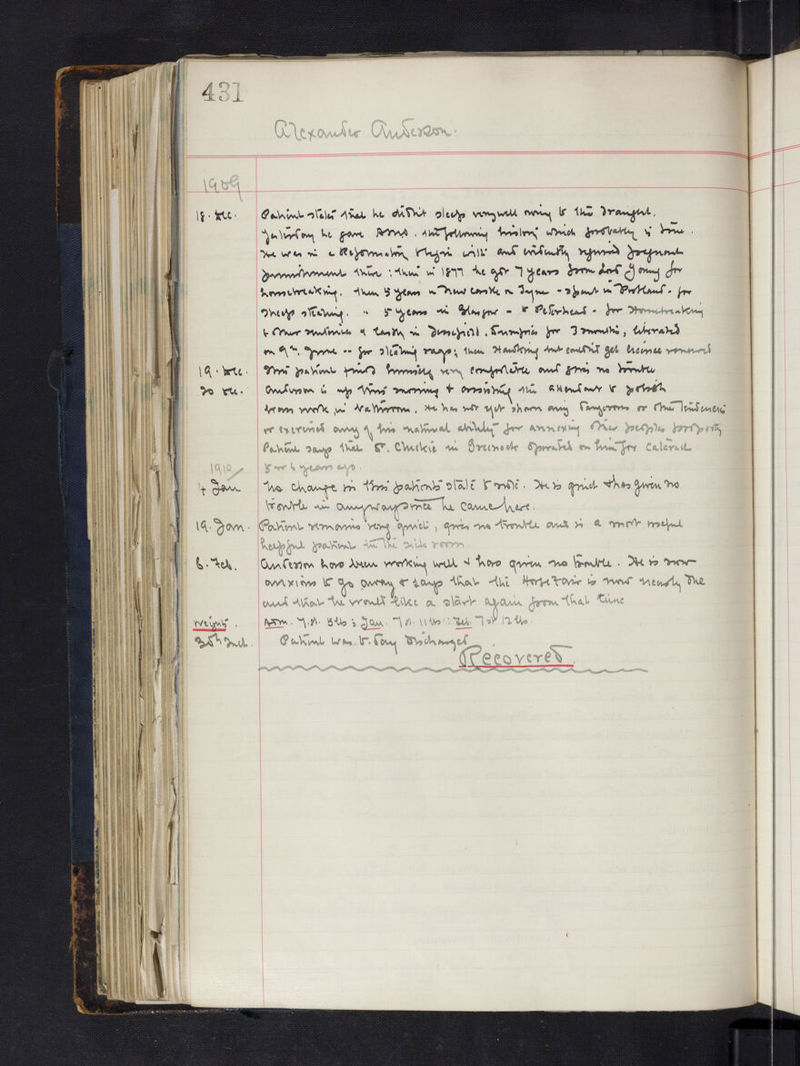 431
Alexander Anderson.
1909
18. Dec. Patient states that he didn't sleep very well owing to the draught.
Yesterday he gave the following history which probably is true.
He was in a Reformatory and evidently required frequent
punishment there: then in 1877 he got 7 years from Lord Young for
housebreaking. Then 5 years in Newcastle on Tyne - spent in Portland - for
Sheep stealing. " 5 years in Glasgow - to Peterhead - for Housebreaking
& lastly in Dumfries for 3 months, liberated
on 9th. June for stealing rags; then Hawking but couldn't get licence renewed
19. Dec. This patient finds himself very comfortable and gives no trouble
20 Dec. Anderson is up this morning & assisting the attendant to polish
brass work in Bathroom. He has not yet shown any dangerous or other tendencies
or exercised any of his natural ability for annexing other peoples property
Patient says that Dr. in Greenock operated on him for Cataract
1910 5 or 6 years ago.
4 Jan No change in this patients state to note. He is quiet & has given no
trouble in any way since he came here.
19. Jan. Patient remains very quiet, gives no trouble and is a most useful
helpful patient in the side room.
6. Feb. Anderson has been working well & has given no trouble. He is now
anxious to go away & says that the is now nearly due
and that he would like a start again from that time
Weight. Adm. 7 st. 5 lbs: Jan. 7 st. 11 lbs: Feb. 7 st 12 lbs.
Patient was to-day Discharged
Recovered